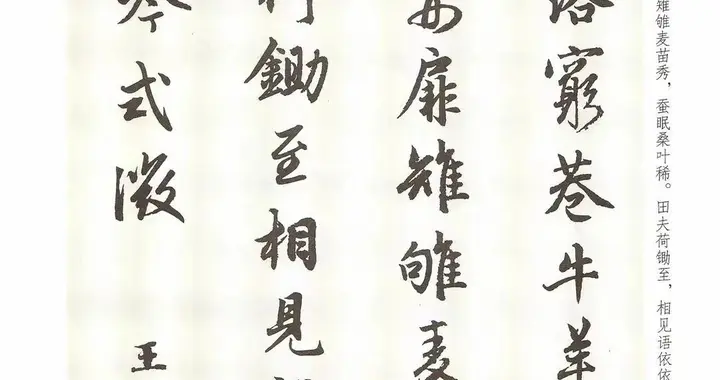 雉雊麦苗秀，蚕眠桑叶稀。田夫荷锄至，相见语依依
窮巷牛羊
扉雉雊麥
鋤至相見
式微 王